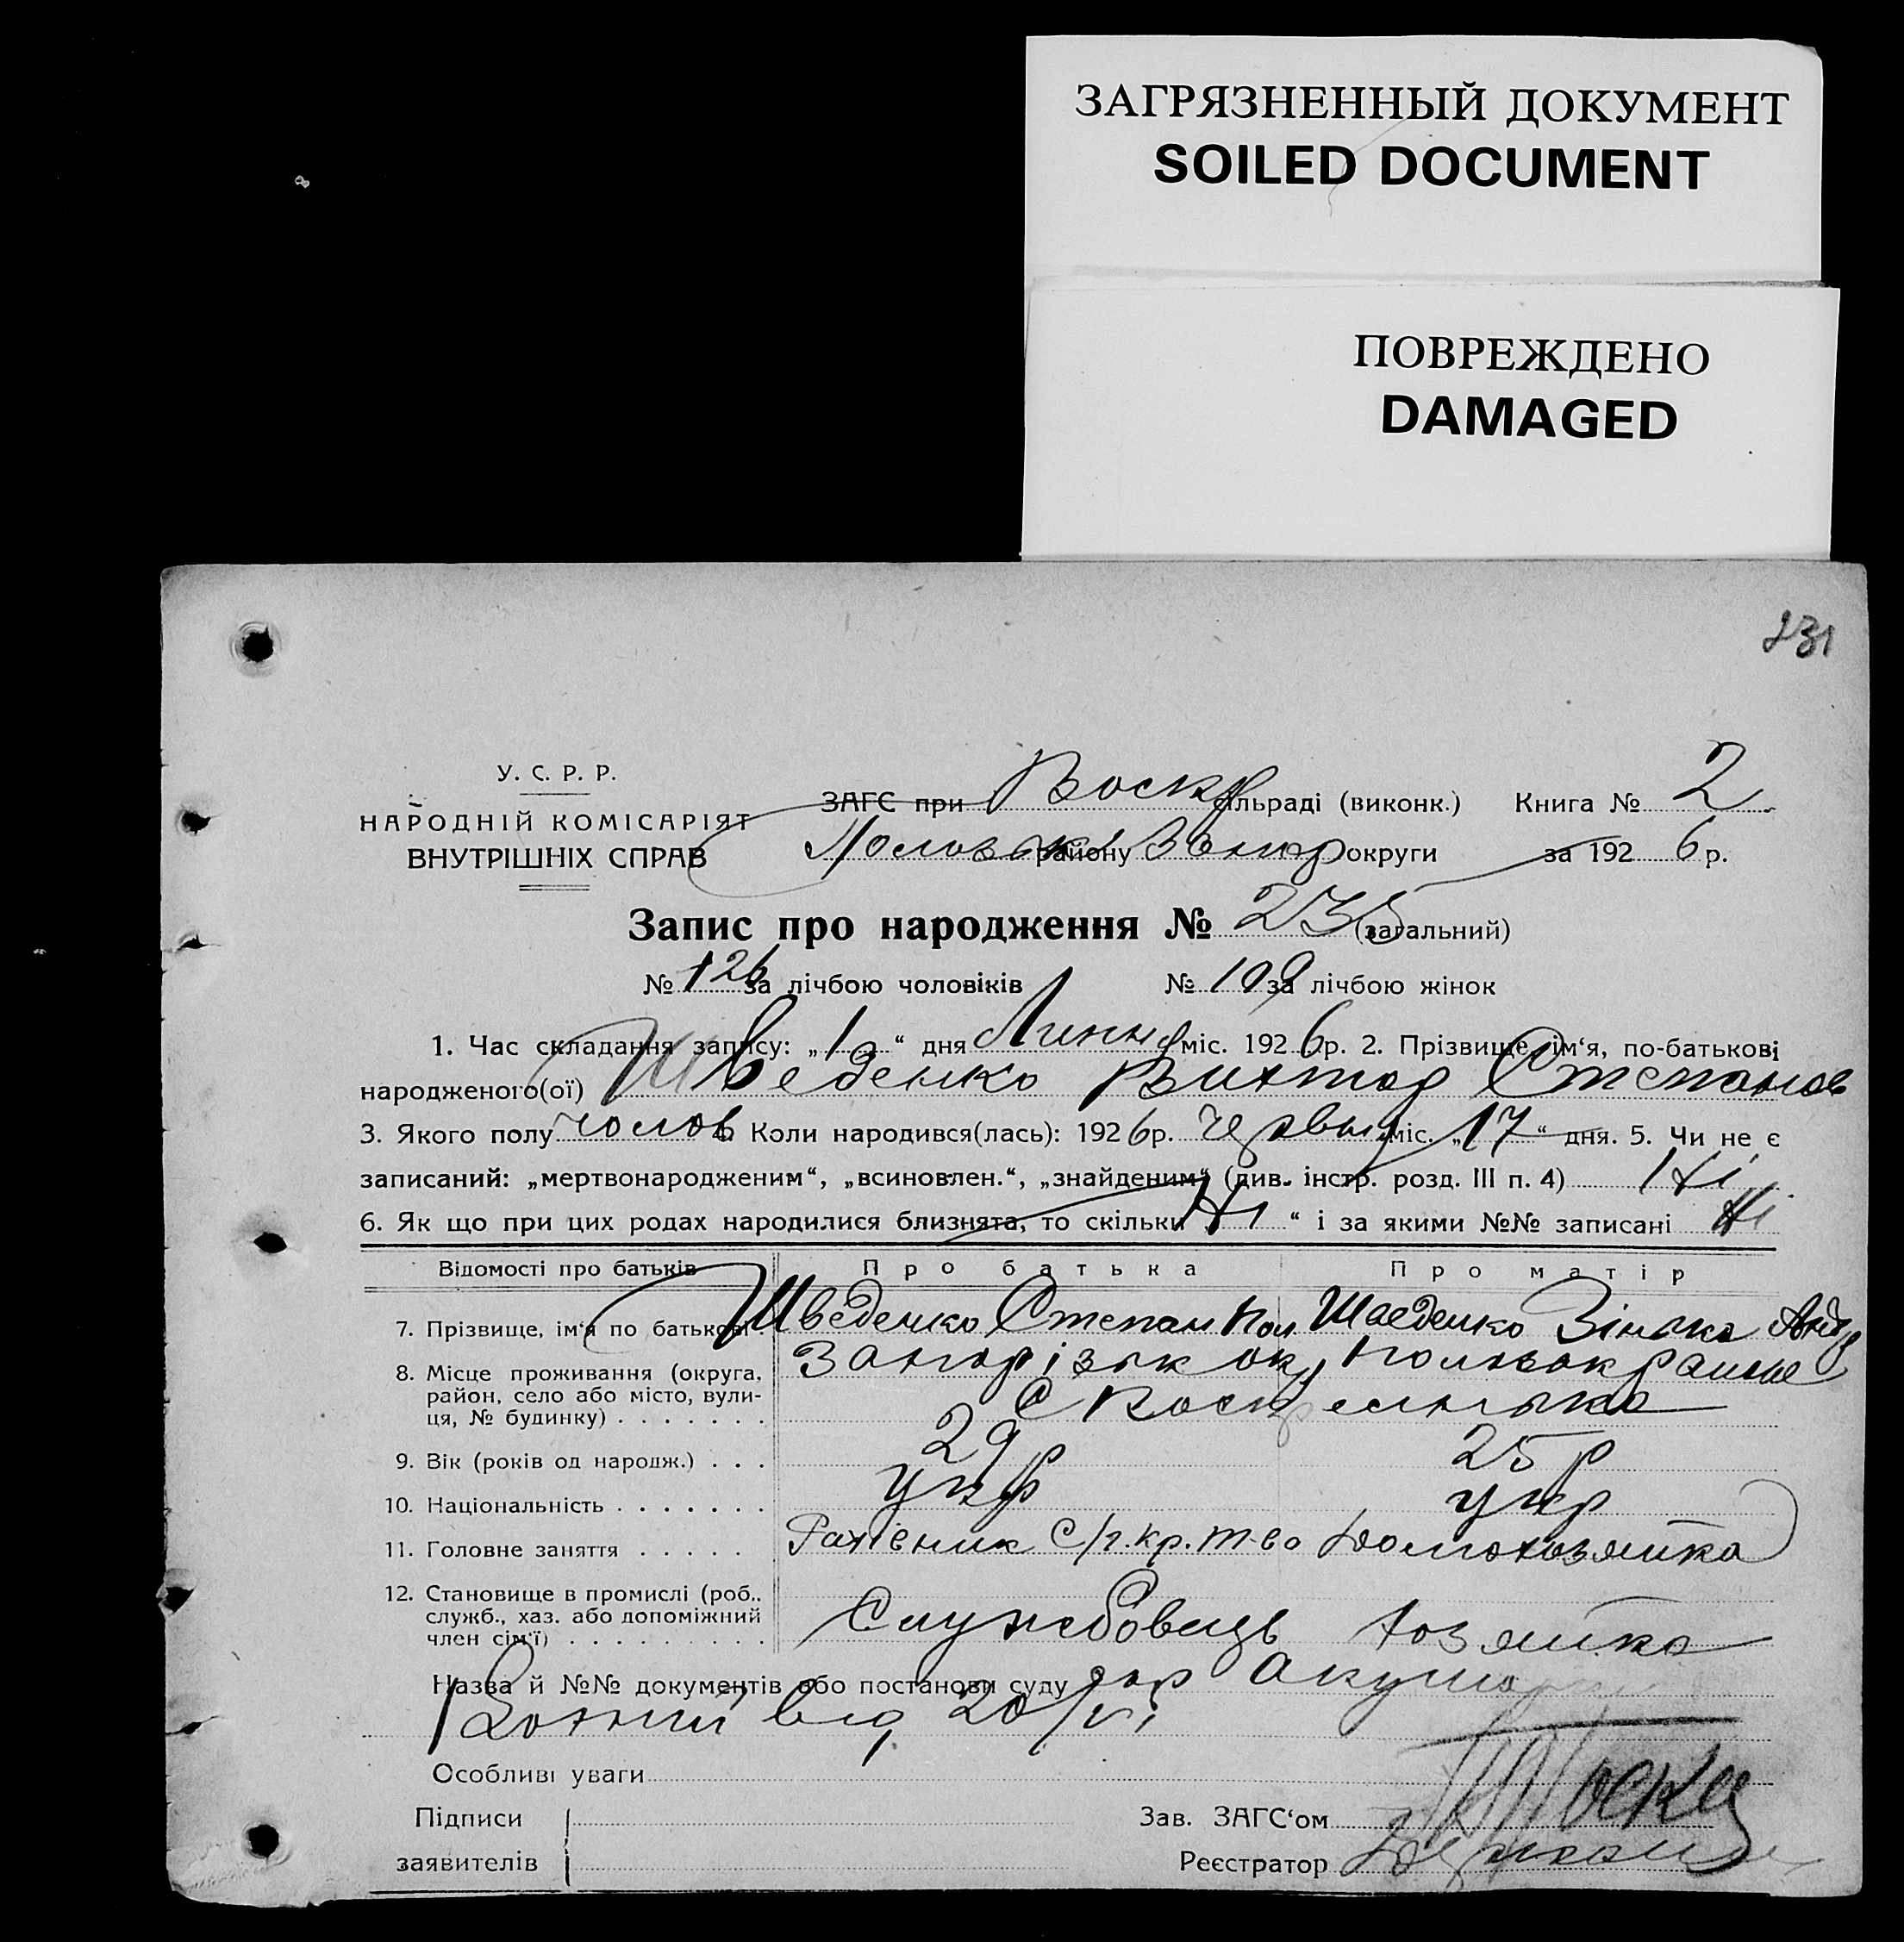 ЗАГРЯЗНЕННЫЙ ДОКУМЕНТ
SOILED DOCUMENT
ПОВРЕЖДЕНО
DAMAGED
231
У. С. Р. Р.
НАРОДНІЙ КОМІСАРІЯТ
ВНУТРІШНІХ СПРАВ
ЗАГС при Воскр сільраді (виконк.) Книга № 2
району Запор округи за 1926 р.
Запис про народження № 235 (загальний)
№ 126 за лічбою чоловіків № 109 за лічбою жінок
1. Час складання запису: „1“ дня Липня міс. 1926 р. 2. Прізвище, ім‘я, по-батькові
народженого(ої) Шведенко Виктор Степанов
3. Якого полу чолов 4. Коли народився(лась): 1926 р. Червня міс. „17“ дня. 5. Чи не є
записаний: „мертвонародженим“, „всиновлен.“, „знайденим“ (див. інстр. розд. III п. 4) Ні
6. Як що при цих родах народилися близнята, то скільки „Ні“ і за якими №№ записані Ні
Відомості про батьків Про батька Про матір
7. Прізвище, ім‘я по батькові. Шведенко Степан Шведенко Зінька
8. Місце проживання (округа, район, село або місто, вулиця, № будинку) Запорізьк ок,
С Воскресенька
9. Вік (років од народж.) 29 р 25 р
10. Національність укр укр
11. Головне заняття Рахівник С/г.кр.т-во Домохозяйка
12. Становище в промислі (роб., служб., хаз. або допоміжний член сім‘ї) Службовець хозяйка
Назва й №№ документів або постанови суду
від 20/VI
Особливі уваги
Підписи
заявителів
Зав. ЗАГС‘ом
Реєстратор